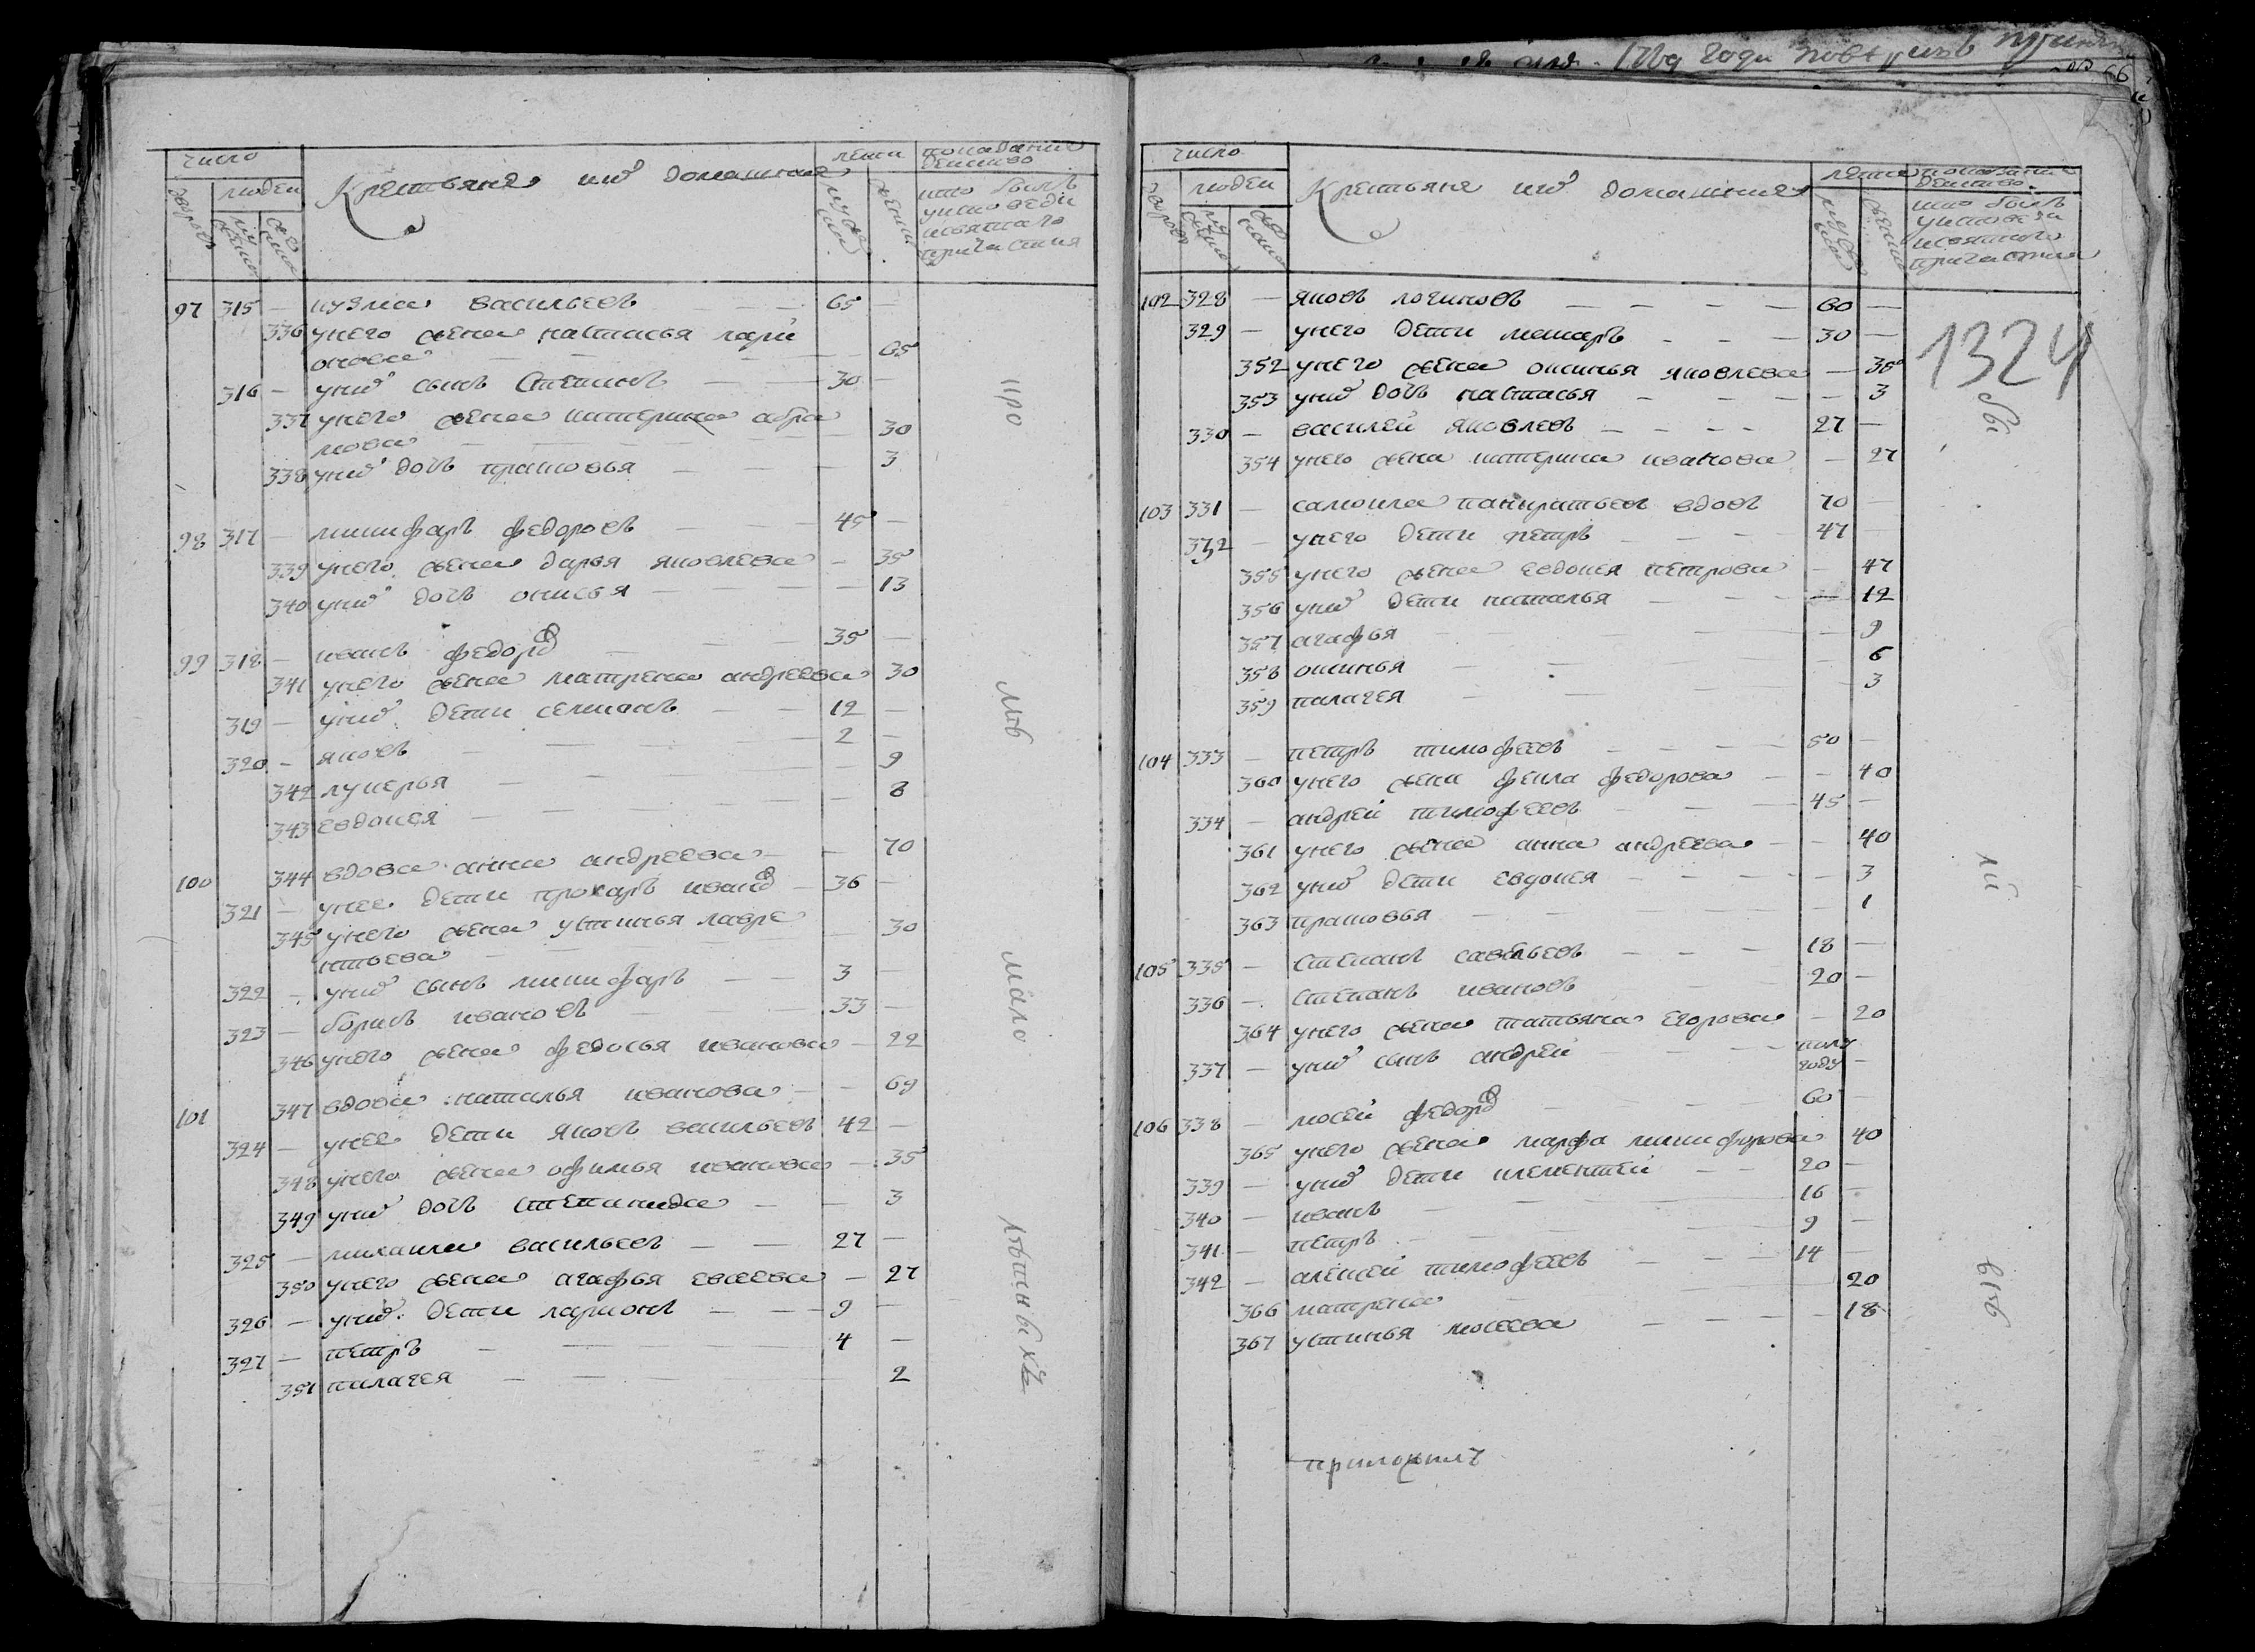 число
людей
Крестьяне ихъ домашния
лета
показание действо
дворовъ
мужеска
женска
мужеска
женска
кто былъ
у исповеди
и святаго
причастия
97 315 — кузма васильевъ — — 65 —
336 у него жена настасья лари
онова — — — — 65
316 — у них сынъ Степанъ — — 30 —
337 у него жена катерина абра
мова — — — — 30
338 у них дочь прасковья — — — 3
98 317 — никифаръ федоровъ — — — 45 —
339 у него жена дарья яковлева — 35
340 у них дочь онисья — — — — 13
99 318 — иванъ федоров — — 35 —
341 у него жена матрена андреева 30
319 — у них дети семионъ — — 12 —
320 — яковъ — — — — 2 —
342 лукерья — — — — 9
343 евдокея — — — — — 8
100 344 вдова анна андреева — — 70
321 — у нее дети прохаръ иванов — 36 —
345 у него жена устинья лавре — 30
нтьева — —
322 — у них сынъ никифаръ — — 3 —
323 — борисъ ивановъ — — 33 —
346 у него жена федосья иванова — 22
101 347 вдова наталья иванова — — 69
324 — у нее дети яковъ васильевъ 42 —
348 у него жена офимья иванова — 35
349 у них дочь степанида — — 3
325 — михаила васильевъ — — 27 —
350 у него жена агафья евсеева — 27
326 — у них дети ларионъ — — 9 —
327 — петръ — — — — 4 —
351 пилагея — — — — 2
про
мъ
мало
летныхъ
66
число
людей
Крестьяне ихъ домашния
лета
показание
действо
дворовъ
мужеска
женска
мужеска
женска
кто былъ
у исповеди
и святаго
причастия
1324
102 328 — яковъ логиновъ — — — — 60 —
329 — у него дети макаръ — — — 30 —
352 у него жена оксинья яковлева — 38
353 у них дочь настасья — — — — 3
330 — василей яковлевъ — — — — 27 —
354 у него жена катерина иванова — 27
103 331 — самоила панкратьевъ вдовъ 70 —
332 — у него дети петръ — — — 47 —
355 у него жена евдокея петрова — 47
356 у них дети наталья — — — — 12
357 агафья — — — — 9
358 оксинья — — — — 6
359 палагея — — — — 3
104 333 — петръ тимофеевъ — — — — 50 —
360 у него жена фекла федорова — — 40
334 — андрей тимофеевъ — — — 45 —
361 у него жена анна андреева — — 40
362 у них дети евдокея — — — — 3
363 прасковья — — — — 1
105 335 — степанъ савельевъ — — — 18 —
336 — степанъ ивановъ — — 20 —
364 у него жена татьяна егорова — 20
337 — у них сынъ андрей — — — полу
году —
106 338 — мосей федоров — — — 60 —
365 у него жена марфа никифорова 40
339 — у них дети клементей — — 20 —
340 — иванъ — — — 16 —
341 — петръ — — — 9 —
342 — алексей тимофеевъ — — — 14 —
366 матрена — — — 20
367 устинья мосеева — — — — 18
приложилъ